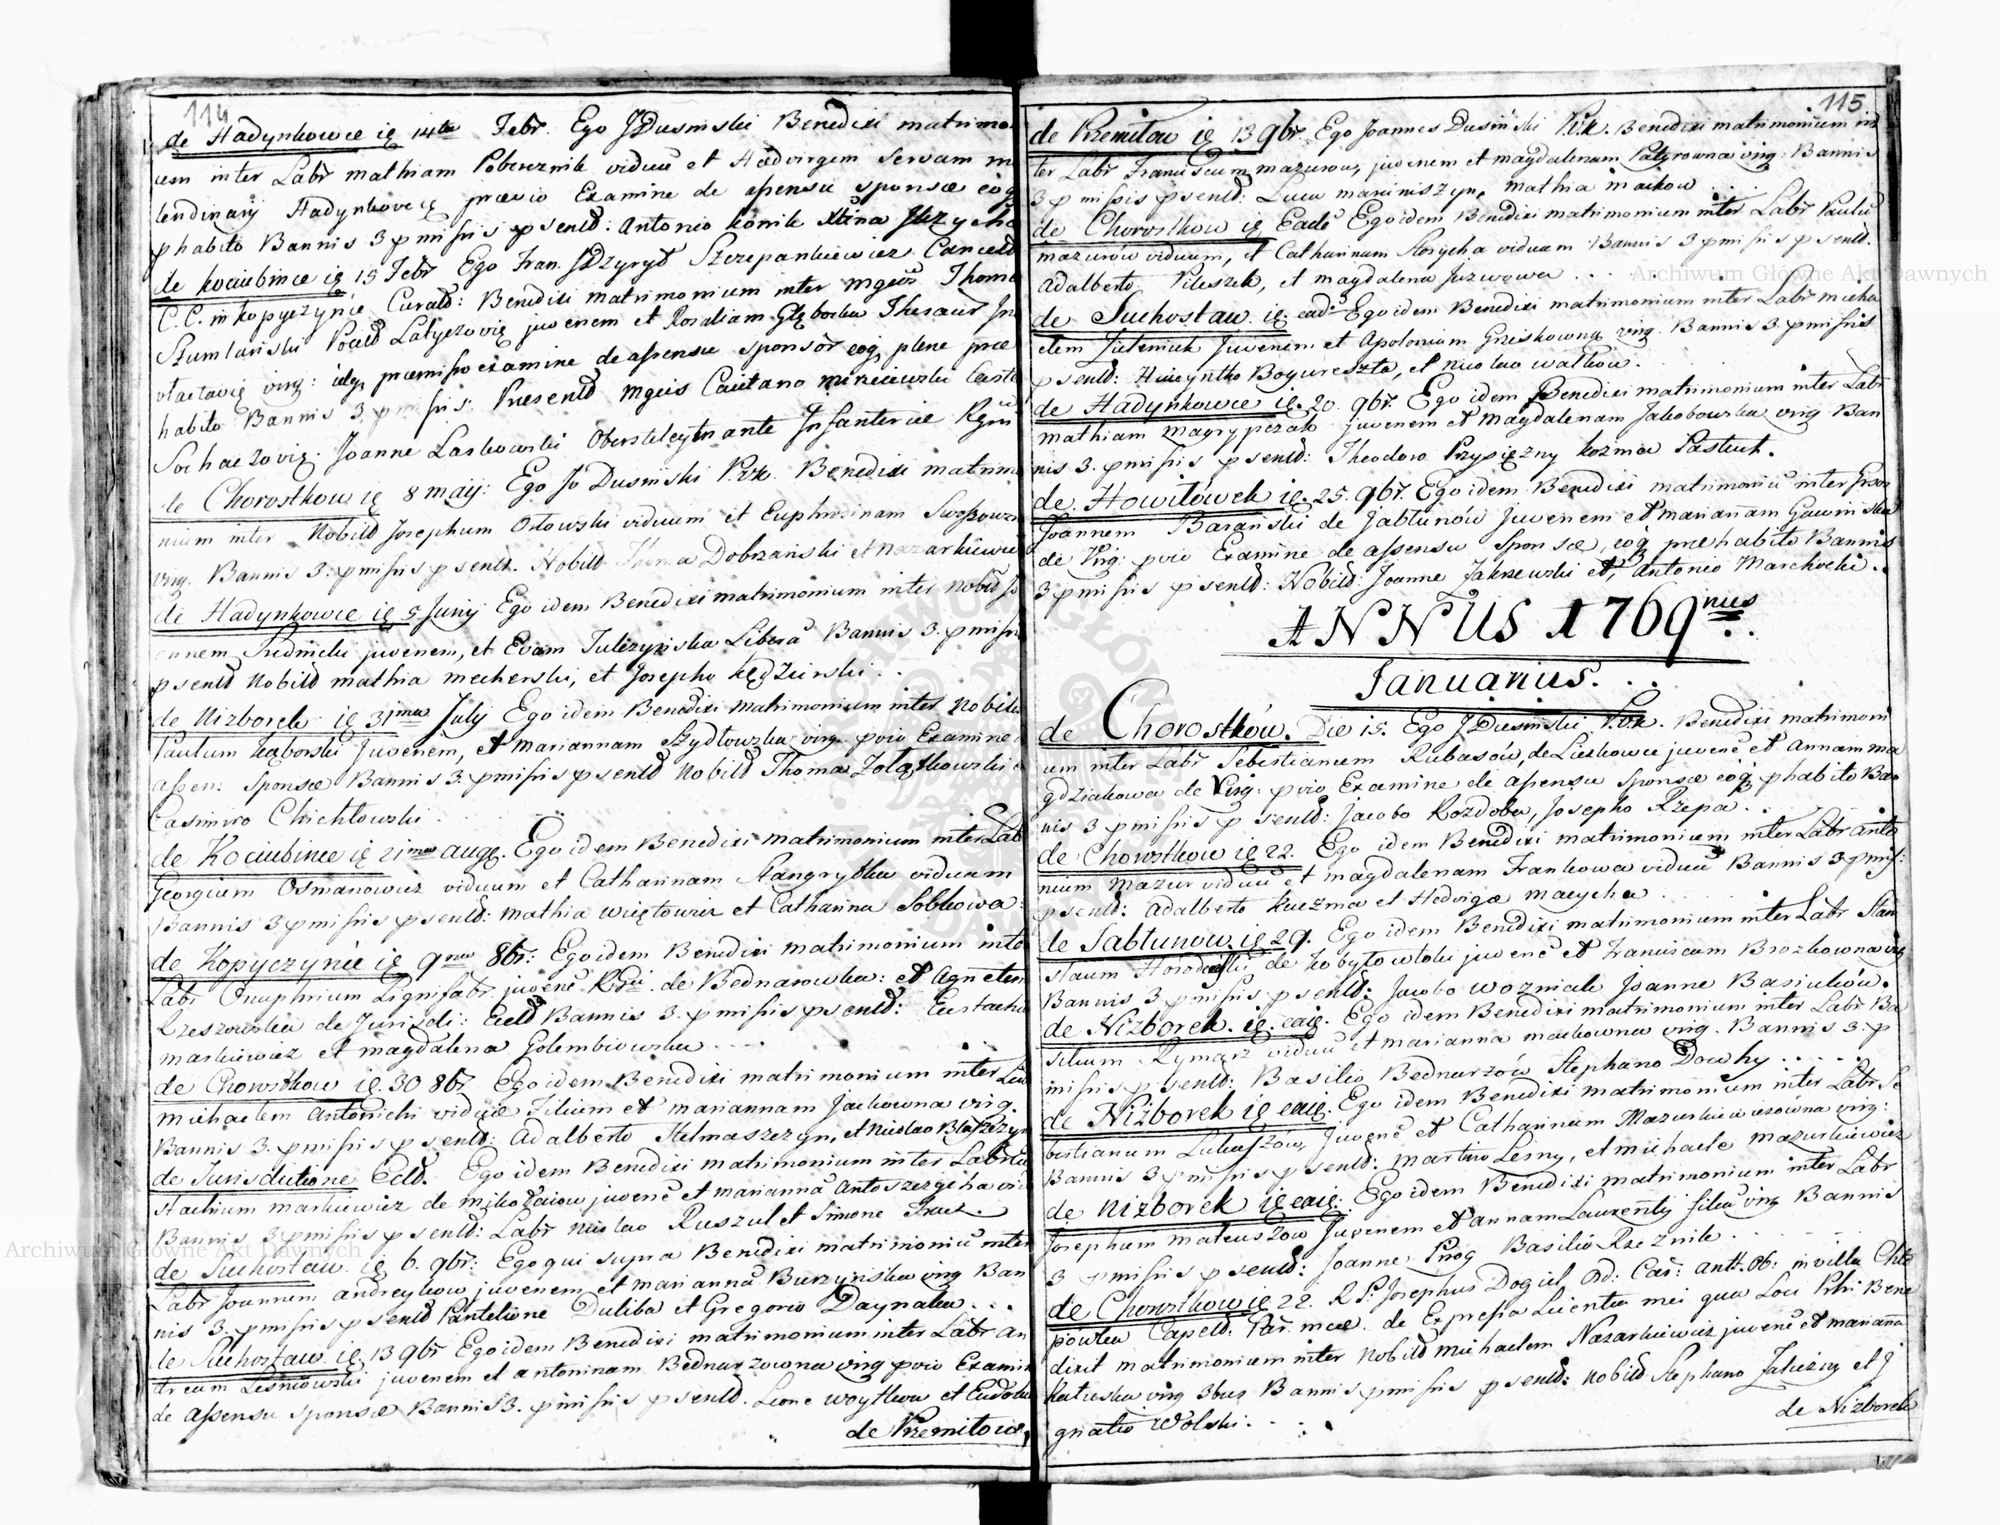 114
de Hadynkowce ię 14ta Febr. Ego JDusinski Benedixi matrimo
um inter Labr mathiam Pobereznik viduũ et Hedvirgem Servam
lendinarÿ Hadynkovecię prævio Examine de assensu sponsæ eoq
phabito Bannis 3 pmissis psentb: Antonio konik
de kociubince ię 15 Febr Ego Fran. Szczepankiewicz Cancell
C. C. in kopyczÿnie Curatb: Benedixi matrimonium inter mgcũ Thoma
Szumlański Pocilb Latyczovię juvenem et Rosaliam Głębocka Thesaur
virg: præmisso examine de assensu sponsor eoq plene præ
habito Bannis 3. pmissis. Presentb mgcis Caietano
Sochaczovię. Joanne Laskowski Oberstleytnante Infanteriæ Regim
de Chorostkow ię 8 maÿ: Ego Jo Dusinski Benedixi matrim
nium inter Nobilb Josephum Orłowski viduum et Euphrosinam
virg. Bannis 3. pmissis psentb. Nobilb Thoma Dobrzański et Nazarkiewicz
de Hadynkowce ię 5 Junÿ Ego idem Benedixi matrimonium inter Nobilb Jo
annem Srednicki juvenem, et Evam Tulczynska Libera Bannis 3. pmissi
psentb Nobilb mathia mecherski, et Josepho kędzierski . .
de Nizborek ię 31ma Julÿ Ego idem Benedixi matrimonium inter Nobilb
Paulum kąborski Juvenem, et mariannam Szydłowska virg. pvio Examine
assen: sponsæ Bannis 3. pmissis psentb Nobilb Thoma Żołątkowski
Casimiro Chrichłowski
de Kociubince ię 21ma augę. Ego idem Benedixi matrimonium inter Lab
Georgium Osmanowicz viduum et Catharinam Stangrytka viduam
Bannis 3 pmissis psentb: mathia więtowicz et Catharina Sobkowa:
de Kopyczynie ię 9na 8br: Ego idem Benedixi matrimonium inte
Labr Onuphrium Lignifabr juvenẽ de Bednarowka: et Agnetem
Rzeszowska de Jurisdi: Eccl Bannis 3. pmissis psentb: Eustachio
markiewicz et magdalena Golembiowska
de Chorostkow ię. 30 8br Ego idem Benedixi matrimonium inter Lab
michaelem Antonichi viduæ Filium et mariannam Jackowna virg.
Bannis 3. pmissis psentb: Adalberto Stelmaszczyn, et Nicolao
de Jurisdictione Eclb. Ego idem Benedixi matrimonium inter Labr Eu
stachium markiewicz de mikołaiow juvenẽ et mariannã Antoszczycha
Bannis 3 pmissis psentb: Labr Nicolao Ruszul et Simone Tracz.
de Suchostaw. ię 6. 9br: Ego qui supra Benedixi matrimoniũ inter
Labr Joannem andreykow juvenem et mariannã Burzynska virg Ban
nis 3. pmissis psentb Panteleone Duliba et Gregorio Daynaka . . .
de Suchostaw ię 13 9br Ego idem Benedixi matrimonium inter Labr an
dream Lesniowski juvenem et antoninam Bednarzowna virg pvio Examin
de assensu sponsæ Bannis 3. pmissis psentb. Leone woytkow et Eudokia
de Przemiłow,
115
de Przemiłow ię 13 9br. Ego Joannes Dusinski Benedixi matrimonium in
ter Labr Franciscum mazurow, juvenem et magdalenam Patyrowna virg Bannis
3 pmissis psentb: Luca maximiszyn, mathia mackow . . .
de Chorostkow ię Eadẽ Ego idem Benedixi matrimonium inter Labr Paulũ
mazurow viduum, et Catharinam Storycha viduam Bannis 3 pmissis psentb.
Adalberto Pileszek, et magdalena juzwowa . . .
de Suchostaw. ię eadẽ Ego idem Benedixi matrimonium inter Labr micha
elem Zieleniuk Juvenem et Apolonium Gniskowna virg. Bannis 3. pmissis
psentb: Hiacyntho Bogureszta, et nicolao watkow.
de Hadynkowce ię. 20. 9br. Ego idem Benedixi matrimonium inter Labr
mathiam magrypczak Juvenem et magdalenam Jakobowska virg Ban
nis 3. pmissis psentb: Theodoro Przysięzny kozma Pastuch.
de. Howiłówek ię. 25. 9br. Ego idem Benedixi matrimoniũ inter
Joannem Barański de Jabłunów Juvenem et mariannam Gawinska
de Virg: pvio Examine de assensu Sponsæ, eoq præhabito Bannis
3 pmissis psentb: Nobilb: Joanne Zakrzewski et, Antonio Marchocki . .
ANNUS 1769nus
Januarius. . .
de Chorostków. Die 15. Ego J Dusinski Benedixi matrimoni
um inter Labr Sebestianum Rubasów, de Lickowce juvenẽ et Annam ma
gdziakowa de Virg: pvio Examine de assensu Sponsæ eoq phabito Ban
nis 3 pmissis psentb: Jacobo Rozdoba, Josepho Rzepa . .
de Chorostkow ię 22. Ego idem Benedixi matrimonium inter Labr anto
nium Mazur viduũ et magdalenam Frankowa viduũ Bannis 3 pmis:
psentb: Adalberto kuczma et Hedvigæ macycha
de Jabłunow. ię 29. Ego idem Benedixi matrimonium inter Labr Stani
slaum Horodecki, de kobyłowłoki juvenẽ et Franciscam Brozkowna virg
Bannis 3 pmissis psentb: Jacobo wozniak Joanne Basiukow.
de Nizborek. ię. eaię. Ego idem Benedixi matrimonium inter Labr Ba
silium Rymarz viduũ et marianna mackowna virg. Bannis 3. p
missis psentb: Basilio Bednarzów Stephano Dowhy . . . . .
de Nizborek ię eaię. Ego idem Benedixi matrimonium inter Labr Se
bestianum Lukaszów, Juvenẽ et Catharinam Mazurkiewiczowna virg:
Bannis 3 pmissis psentb: Martino Lesny, et michaele mazurkiewicz
de nizborek ię eaię. Ego idem Benedixi matrimonium inter Labr
Josephum mateuszow Juvenem et annam Laurentÿ filia virg Bannis
3 pmissis psentb: Joanne Pnog Basilio Rzeznik .
de Chorostkow ię 22. R P: Josephus Dogiel Ord: Car: antt. Ob: in villa Chło
powka Capelb: Par. meæ. de Expressa Licentia mei qua Loci Pbri Bene
dixit matrimonium inter Nobilb michaelem Nazarkiewicz juvenẽ et mariannã
katuska virg 3bus Bannis pmissis psentb: Nobilb Stephano Zaliczny et J
gnatio Wolski. . . .
de Nizborek
Archiwum Główne Akt Dawnych
Archiwum Główne Akt Dawnych